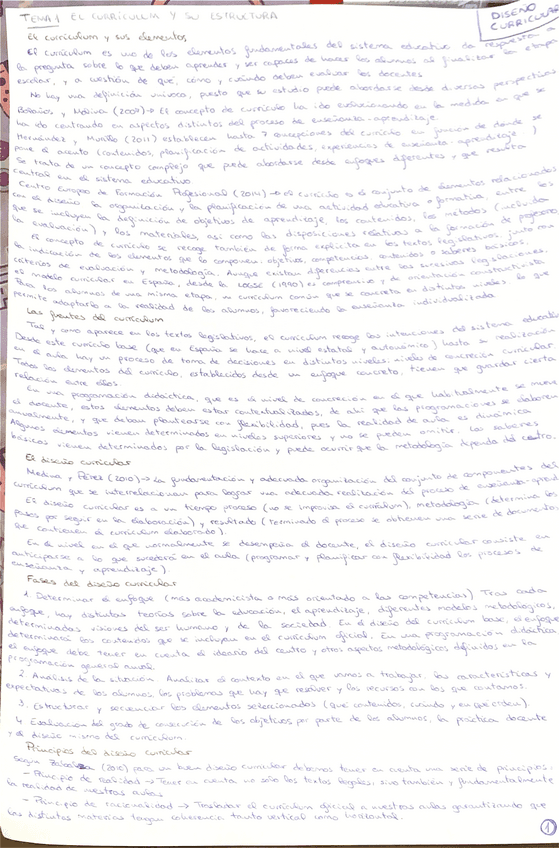 TEMA 1 EL CURRÍCULUM Y SU ESTRUCTURA
DISEÑO
CURRICULAR
El currículum y sus elementos
El currículum es uno de los elementos fundamentales del sistema educativo da respuesta a
la pregunta sobre lo que deben aprender y ser capaces de hacer los alumnos al finalizar la etapa
escolar, y a cuestión de qué, cómo y cuándo deben evaluar los docentes
No hay una definición unívoca, puesto que su estudio puede abordarse desde diversas perspectivas
Bolaños y Molina (2007) → El concepto de currículo ha ido evolucionando en la medida en que se
ha ido centrando en aspectos distintos del proceso de enseñanza-aprendizaje.
Hernández y Murillo (2011) establecen hasta 7 concepciones del currículo en función de donde se
pone el acento (contenidos, planificación de actividades, experiencias de enseñanza-aprendizaje)
Se trata de un concepto complejo que puede abordarse desde enfoques diferentes y que resulta
central en el sistema educativo
Centro Europeo de Formación Profesional (2014) → el currículo es el conjunto de elementos relacionados
con el diseño la organización y la planificación de una actividad educativa o formativa, entre los
que se incluyen la definición de objetivos de aprendizaje, los contenidos, los métodos (incluida
la evaluación) y los materiales, así como las disposiciones relativas a la formación de profesores
El concepto de currículo se recoge también de forma explícita en los textos legislativos, junto con
la indicación de los elementos que lo componen: objetivos, competencias, contenidos o saberes básicos,
criterios de evaluación y metodología. Aunque existan diferencias entre las sucesivas legislaciones,
el modelo curricular en España, desde la LOGSE (1990) es comprensivo y de orientación constructivista
Para los alumnos de una misma etapa, un currículum común que se concreta en distintos niveles lo que
permite adaptarlo a la realidad de los alumnos, favoreciendo la enseñanza individualizada
Las fuentes del currículum
Tal y como aparece en los textos legislativos, el currículum recoge las intenciones del sistema educativo
Desde este currículo base (que en España se hace a nivel estatal y autonómico) hasta su realización
en el aula hay un proceso de toma de decisiones en distintos niveles: niveles de concreción curricular.
Todos los elementos del currículo, establecidos desde un enfoque concreto, tienen que guardar cierta
relación entre ellos.
En una programación didáctica, que es el nivel de concreción en el que habitualmente se mueve
el docente, estos elementos deben estar contextualizados, de ahí que las programaciones se elaboren
anualmente, y que deben plantearse con flexibilidad, pues la realidad de aula es dinámica
Algunos elementos vienen determinados en niveles superiores y no se pueden omitir. Los saberes
básicos vienen determinados por la legislación y puede ocurrir que la metodología dependa del centro.
El diseño curricular
Medina y Pérez (2010) → La fundamentación y adecuada organización del conjunto de componentes del
currículum que se interrelacionan para lograr una adecuada realización del proceso de enseñanza-aprend
El diseño curricular es a un tiempo proceso (no se improvisa el currículum), metodología (determina los
pasos por seguir en la elaboración) y resultado (terminado el proceso se obtienen una serie de documentos
que contienen el currículum elaborado).
En el nivel en el que normalmente se desempeña el docente, el diseño curricular consiste en
anticiparse a lo que sucederá en el aula (programar y planificar con flexibilidad los procesos de
enseñanza y aprendizaje).
Fases del diseño curricular
1. Determinar el enfoque (más academicista o más orientado a las competencias) Tras cada
enfoque, hay distintas teorías sobre la educación, el aprendizaje, diferentes modelos metodológicos,
determinadas visiones del ser humano y de la sociedad. En el diseño del currículum base, el enfoque
determinará los contenidos que se incluyen en el currículum oficial. En una programación didáctica
el enfoque debe tener en cuenta el ideario del centro y otros aspectos metodológicos definidos en la
programación general anual.
2. Análisis de la situación. Analizar el contexto en el que vamos a trabajar, las características y
expectativas de los alumnos los problemas que hay que resolver y los recursos con los que contamos.
3. Estructurar y secuenciar los elementos seleccionados (qué contenidos, cuándo y en qué orden).
4. Evaluación del grado de consecución de los objetivos por parte de los alumnos, la práctica docente
y el diseño mismo del currículum.
Principios del diseño curricular
Según Zabalza (2010) para un buen diseño curricular debemos tener en cuenta una serie de principios:
- Principio de realidad → Tener en cuenta no sólo los textos legales, sino también y fundamentalmente
la realidad de nuestras aulas
- Principio de racionalidad → Trasladar el currículum oficial a nuestras aulas garantizando que
las distintas materias tengan coherencia tanto vertical como horizontal.
1